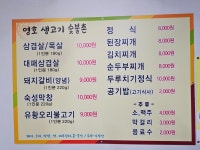 영호 생고기 숯불촌
삼겹살/목살 10,000원
(1인분 180g)
대패삼겹살 9,000원
(1인분 180g)
돼지갈비(양념) 9,000원
(1인분 220g)
숙성막창 10,000원
(1인분 220g)
유황오리불고기 9,000원
(1인분 220g)
정 식 8,000원
된장찌개 8,000원
김치찌개 8,000원
순두부찌개 8,000원
두루치기정식 9,000원
공기밥(고기식사) 2,000원
주 류
소,맥주 4,000원
막걸리 3,000원
음료수 2,000원